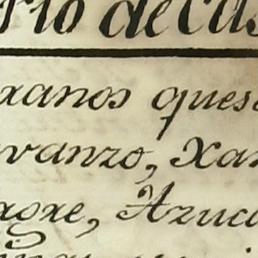 rto de Cas
xanos ques
vanzo, Xar
agre, Azuca